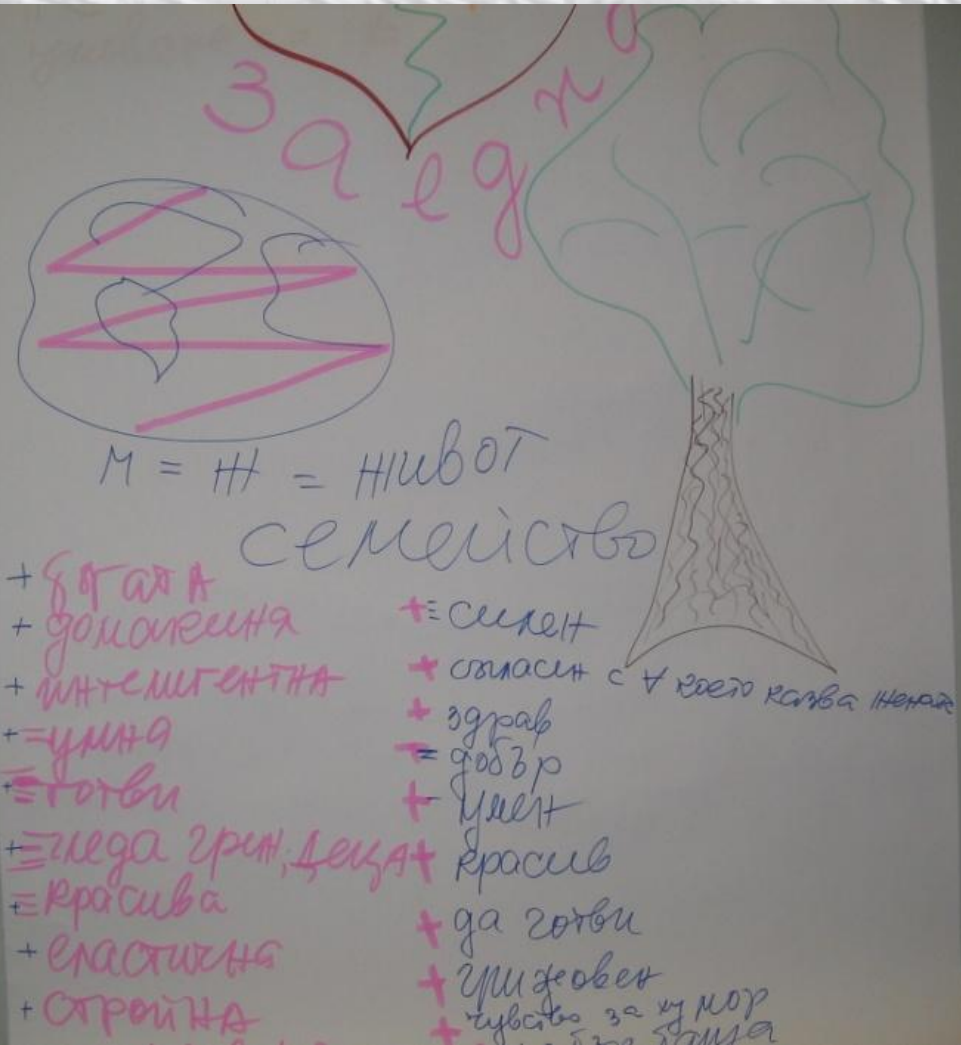 Заедно
М = Ж = живот
семейство
+ богата
+ домакиня
+ интелигентна
+ = умна
+ ≡ готви
+ ≡ гледа гриж, деца
+ ≡ красива
+ еластична
+ стройна
+ = силен
+ съгласен с ∀ което казва жената
+ здрав
+ = добър
+ - умен
+ красив
+ да готви
+ грижовен
+ чувство за хумор